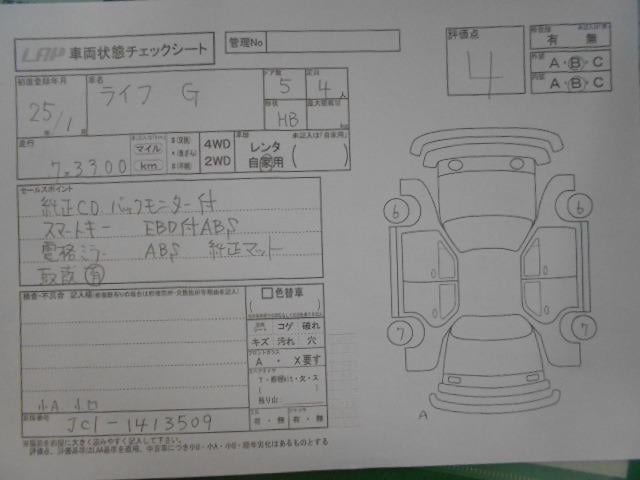 LAP 車両状態チェックシート
管理No
評価点
4
有 無
外装 A・B・C
内装 A・B・C
初度登録年月
25/1
年 月
車名
ライフ G
ドア数
5
定員
4人
形状
HB
最大積載量
kg
走行
7.3300
マイル
km
4WD
2WD
車歴
未記入は「自家用」
レンタ
自家用
( )
セールスポイント
純正CD バックモニター付
スマートキー EBD付ABS
電格ミラー ABS 純正マット
取説 有
検査・不具合
色替車
( )
コゲ 破れ
キズ 汚れ 穴
フロントガラス
A ・ X要す
残り山
小A、小口
車台番号
JC1-1413509
有・無 有・無
6 6
7 7
A